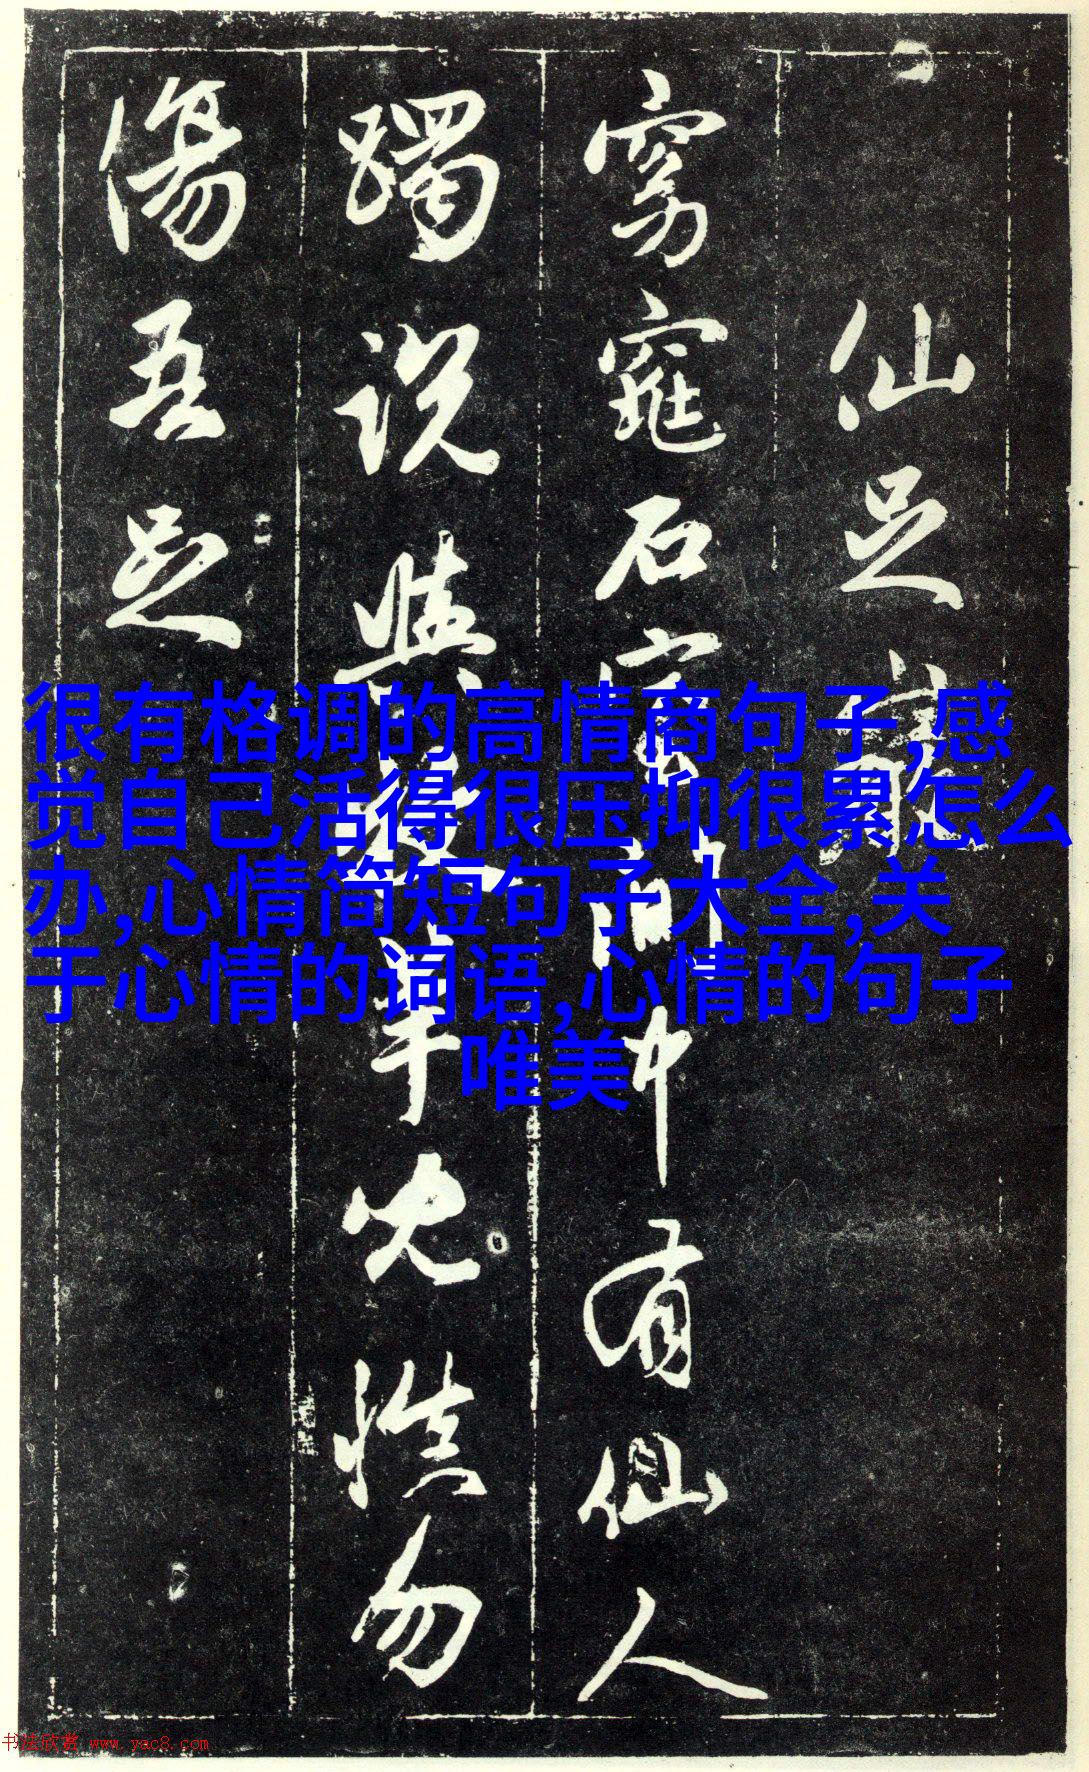 仙足巖
窈窕石室間中有仙人
躅説與牧羊兒慎勿
傷吾足
很有格调的高情商句子,感
觉自己活得很压抑很累怎么
办,心情简短句子大全,关
于心情的词语,心情的句子
唯美
书法欣赏 www.yac8.com